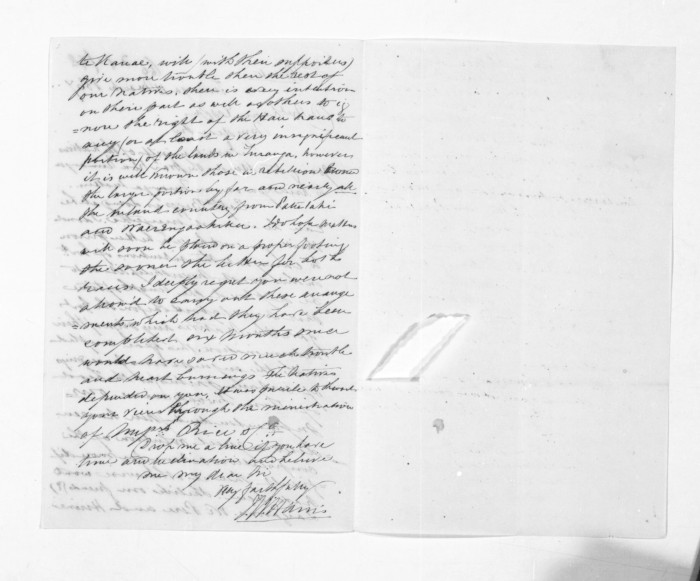 te Hanae, will (with their supporters)
give more trouble then the rest of
our Natives. there is every intention
on their part as well as others to ig
=nore the right of the Hau haus to
any (or at least a very insignificant
portion) of the lands in Turanga, however
it is well known those in rebellion
the larger portion by far and nearly all
the inland country from Patutahi
and Waerengaahika. I do hope matters
will soon be placed on a proper footing
the sooner the better for both
races. I deeply regret you were not
allowed to carry out these arrange
=ments, which had they have been
completed six months since
would have saved much trouble
and heart burnings. The Natives
depended on you, it was to
your views through the ministration
of Mess Rice &c
Drop me a line if you have
time and inclination and believe
me my dear Sir
Very faithfully
Harris